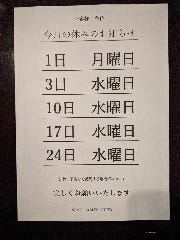 今月の休みのお知らせ
1日 月曜日
3日 水曜日
10日 水曜日
17日 水曜日
24日 水曜日
宜しくお願いいたします